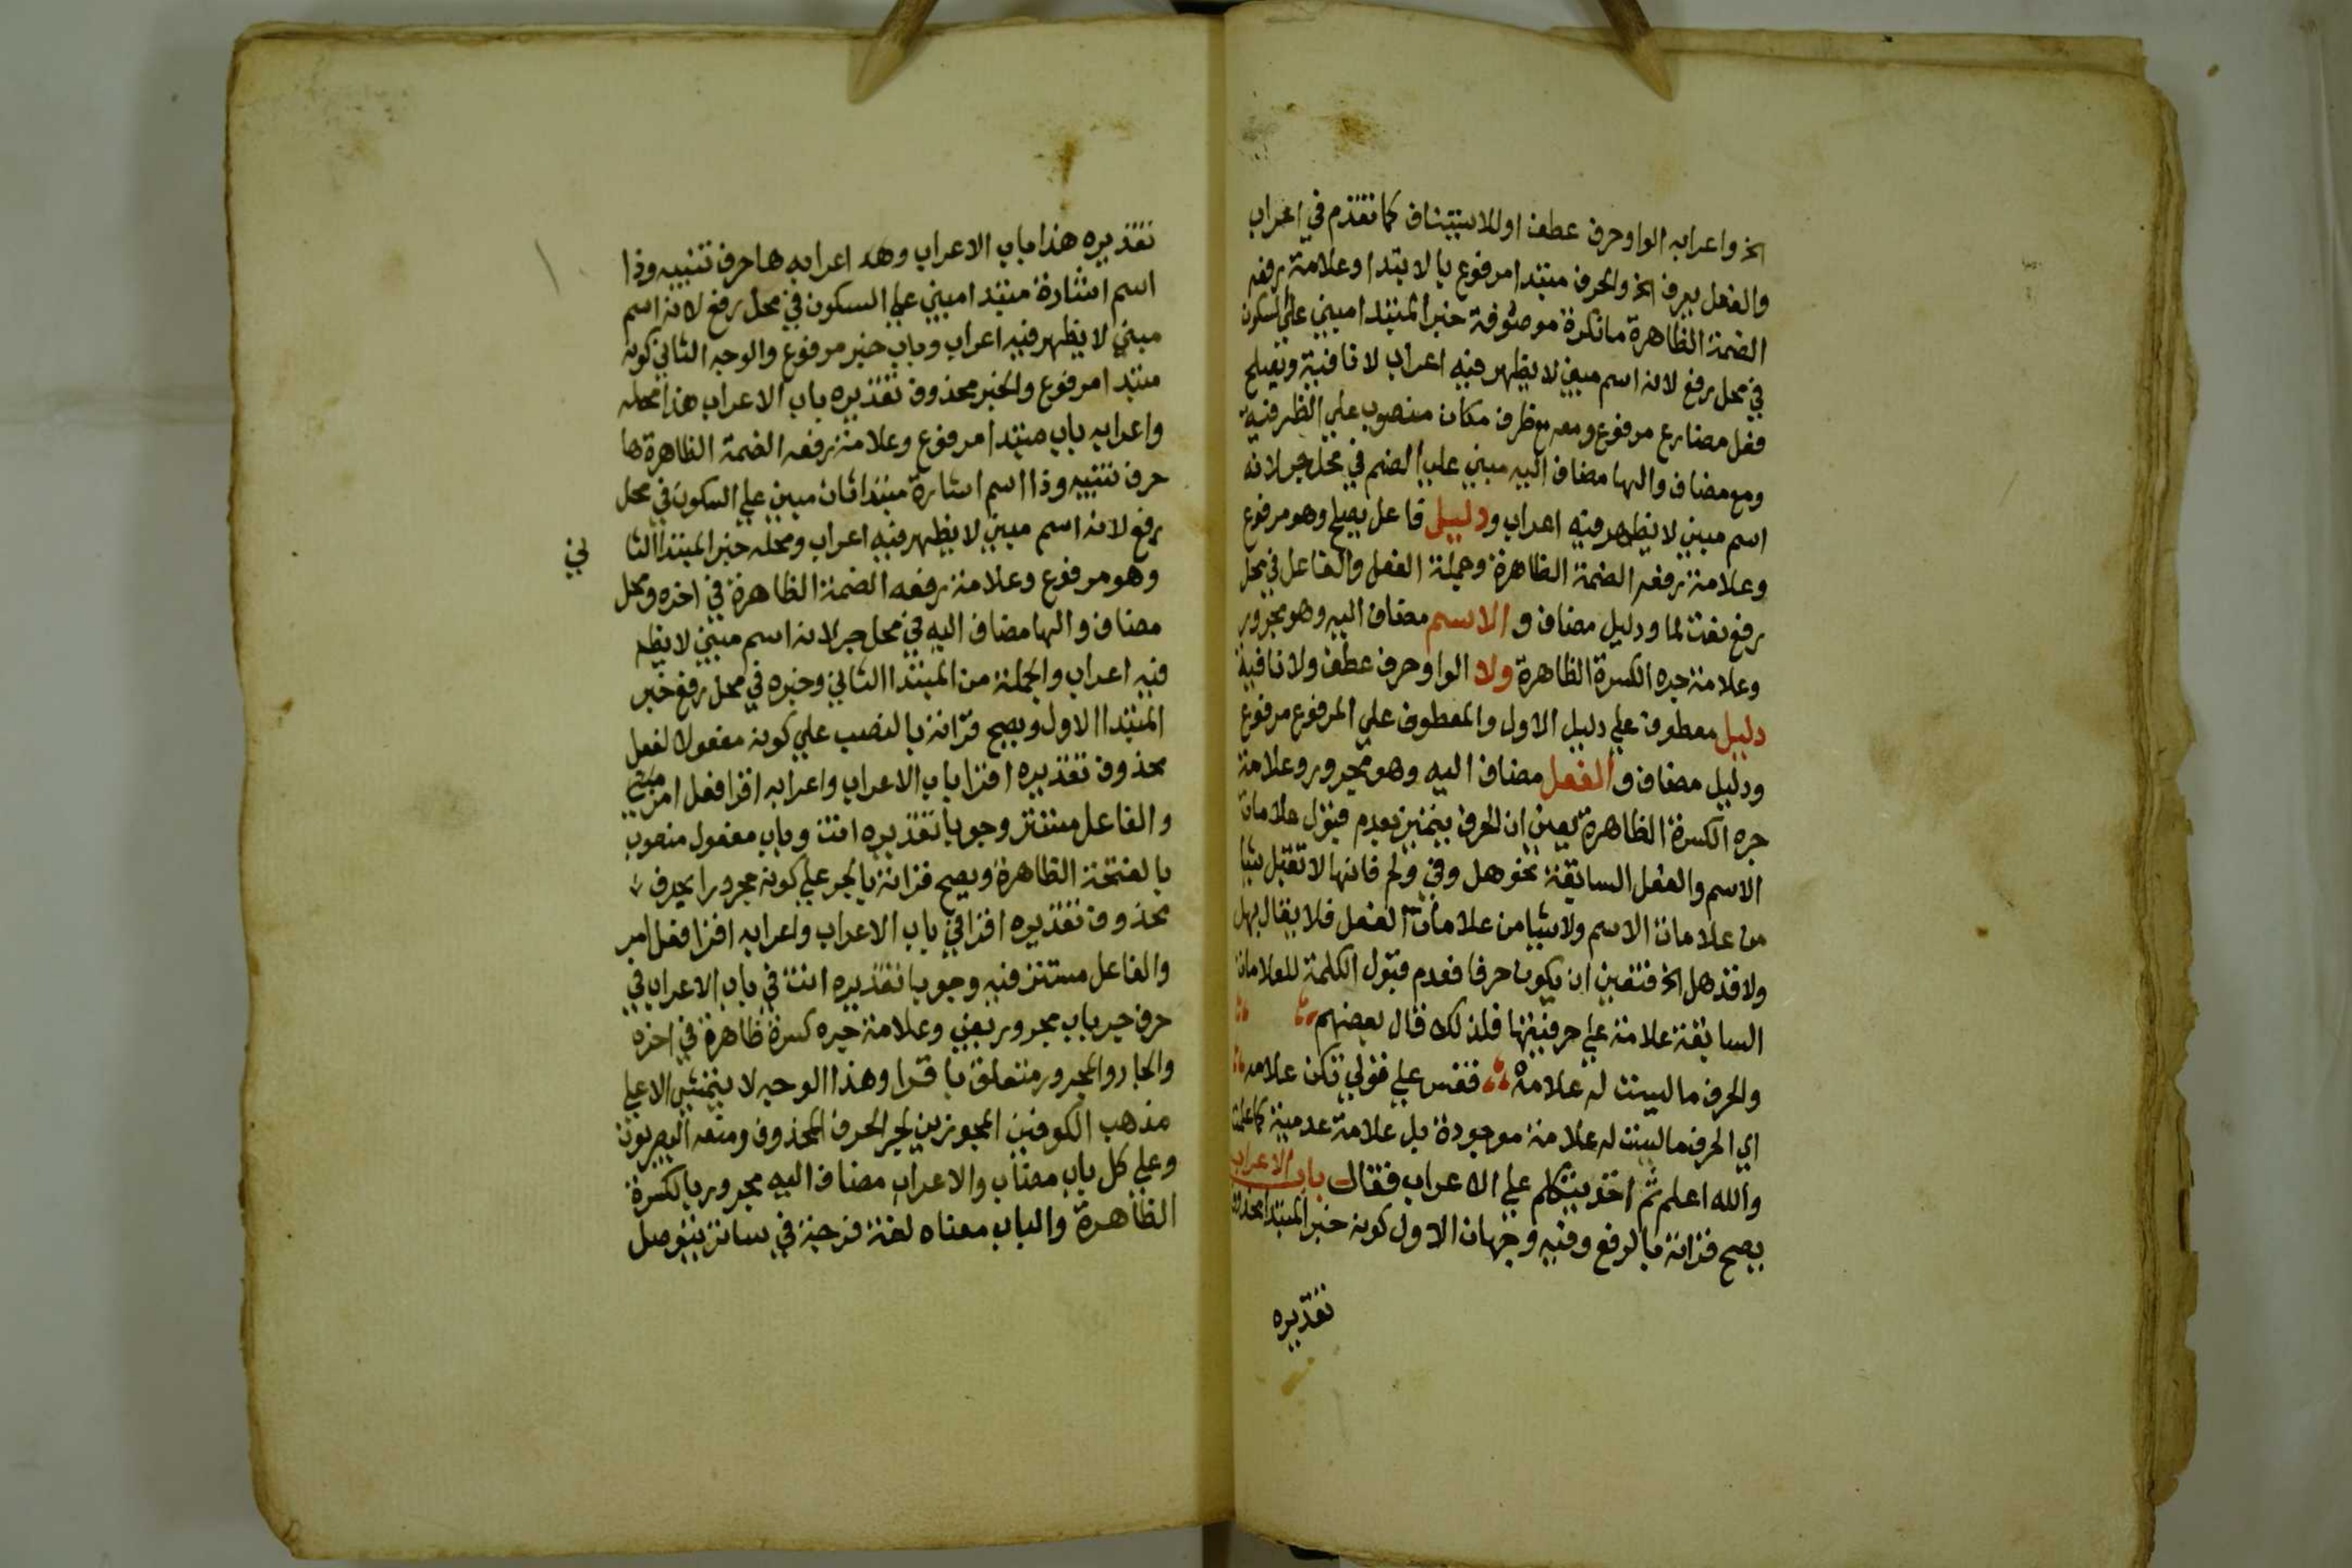 الخ واعرابه الواو حرف عطف او للاستيناف كما تقدم في اعراب
والفعل يعرف الخ والحرف مبتدا مرفوع بالابتدا وعلامة رفعه
الضمة الظاهرة ما نكرة موصوفة خبر المبتدا مبني علي السكون
في محل رفع لانه اسم مبني لا يظهر فيه اعراب لا نافية ويصلح
فعل مضارع مرفوع ومعه مع ظرف مكان منصوب علي الظرفية
ومع مضاف والها مضاف اليه مبني علي الضم في محل جر لانه
اسم مبني لا يظهر فيه اعراب ودليل فاعل يصلح وهو مرفوع
وعلامة رفعه الضمة الظاهرة وجملة الفعل والفاعل في محل
رفع نعت لما ودليل مضاف والاسم مضاف اليه وهو مجرور
وعلامة جره الكسرة الظاهرة ولا الواو حرف عطف ولا نافية
دليل معطوف علي دليل الاول والمعطوف علي المرفوع مرفوع
ودليل مضاف والفعل مضاف اليه وهو مجرور وعلامة
جره الكسرة الظاهرة يعني ان الحرف يتميز بعدم قبول علامات
الاسم والفعل السابقة نحو هل وفي ولم فانها لا تقبل شيا
من علامات الاسم ولا شيا من علامات الفعل فلا يقال بهل
ولا قد هل الخ فتعين ان يكون حرفا فعدم قبول الكلمة للعلامات
السابقة علامة علي حرفيتها فلذلك قال بعضهم
والحرف ما ليست له علامه فقس علي قولي تكن علامه
اي الحرف ما ليست له علامة موجودة بل علامة عدمية كما علمت
والله اعلم ثم اخذ يتكلم علي الاعراب فقال باب الاعراب
يصح قراته بالرفع وفيه وجهان الاول كونه خبر المبتدا محذوف
تقديره
تقديره هذا باب الاعراب وهد اعرابه ها حرف تنبيه وذا
اسم اشارة مبتدا مبني علي السكون في محل رفع لانه اسم
مبني لا يظهر فيه اعراب وباب خبر مرفوع والوجه الثاني كونه
مبتدا مرفوع والخبر محذوف تقديره باب الاعراب هذا محله
واعرابه باب مبتدا مرفوع وعلامة رفعه الضمة الظاهرة ها
حرف تنبيه وذا اسم اشارة مبتدا ثان مبني علي السكون في محل
رفع لانه اسم مبني لا يظهر فيه اعراب ومحله خبر المبتدا الثا ني
وهو مرفوع وعلامة رفعه الضمة الظاهرة في اخره ومحل
مضاف والها مضاف اليه في محل جر لانه اسم مبني لا يظهر
فيه اعراب والجملة من المبتدا الثاني وخبره في محل رفع خبر
المبتدا الاول ويصح قراته بالنصب علي كونه مفعولا لفعل
محذوف تقديره اقرا باب الاعراب واعرابه اقرا فعل امر مبني
والفاعل مستتر وجوبا تقديره انت وباب مفعول منصوب
بالفتحة الظاهرة ويصح قراته بالجر علي كونه مجرورا بحرف
محذوف تقديره اقرا في باب الاعراب واعرابه اقرا فعل امر
والفاعل مستتر فيه وجوبا تقديره انت في باب الاعراب في
حرف جر باب مجرور بفي وعلامة جره كسرة ظاهرة في اخره
والجار والمجرور متعلق باقرا وهذا الوجه لا يتمشي الا علي
مذهب الكوفين المجوزين لجر الحرف المحذوف ومنعه البصريون
وعلي كل باب مضاب والاعراب مضاف اليه مجرور بالكسرة
الظاهرة والباب معناه لغة فرجة في ساتر يتوصل